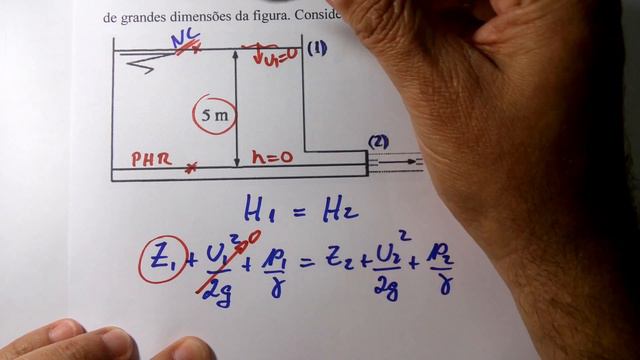 de grandes dimensões da figura. Conside
NC
v₁=0
(1)
5 m
(2)
PHR
h=0
H₁ = H₂
Z₁ + v₁²/2g 0 + p₁/γ = Z₂ + v₂²/2g + p₂/γ